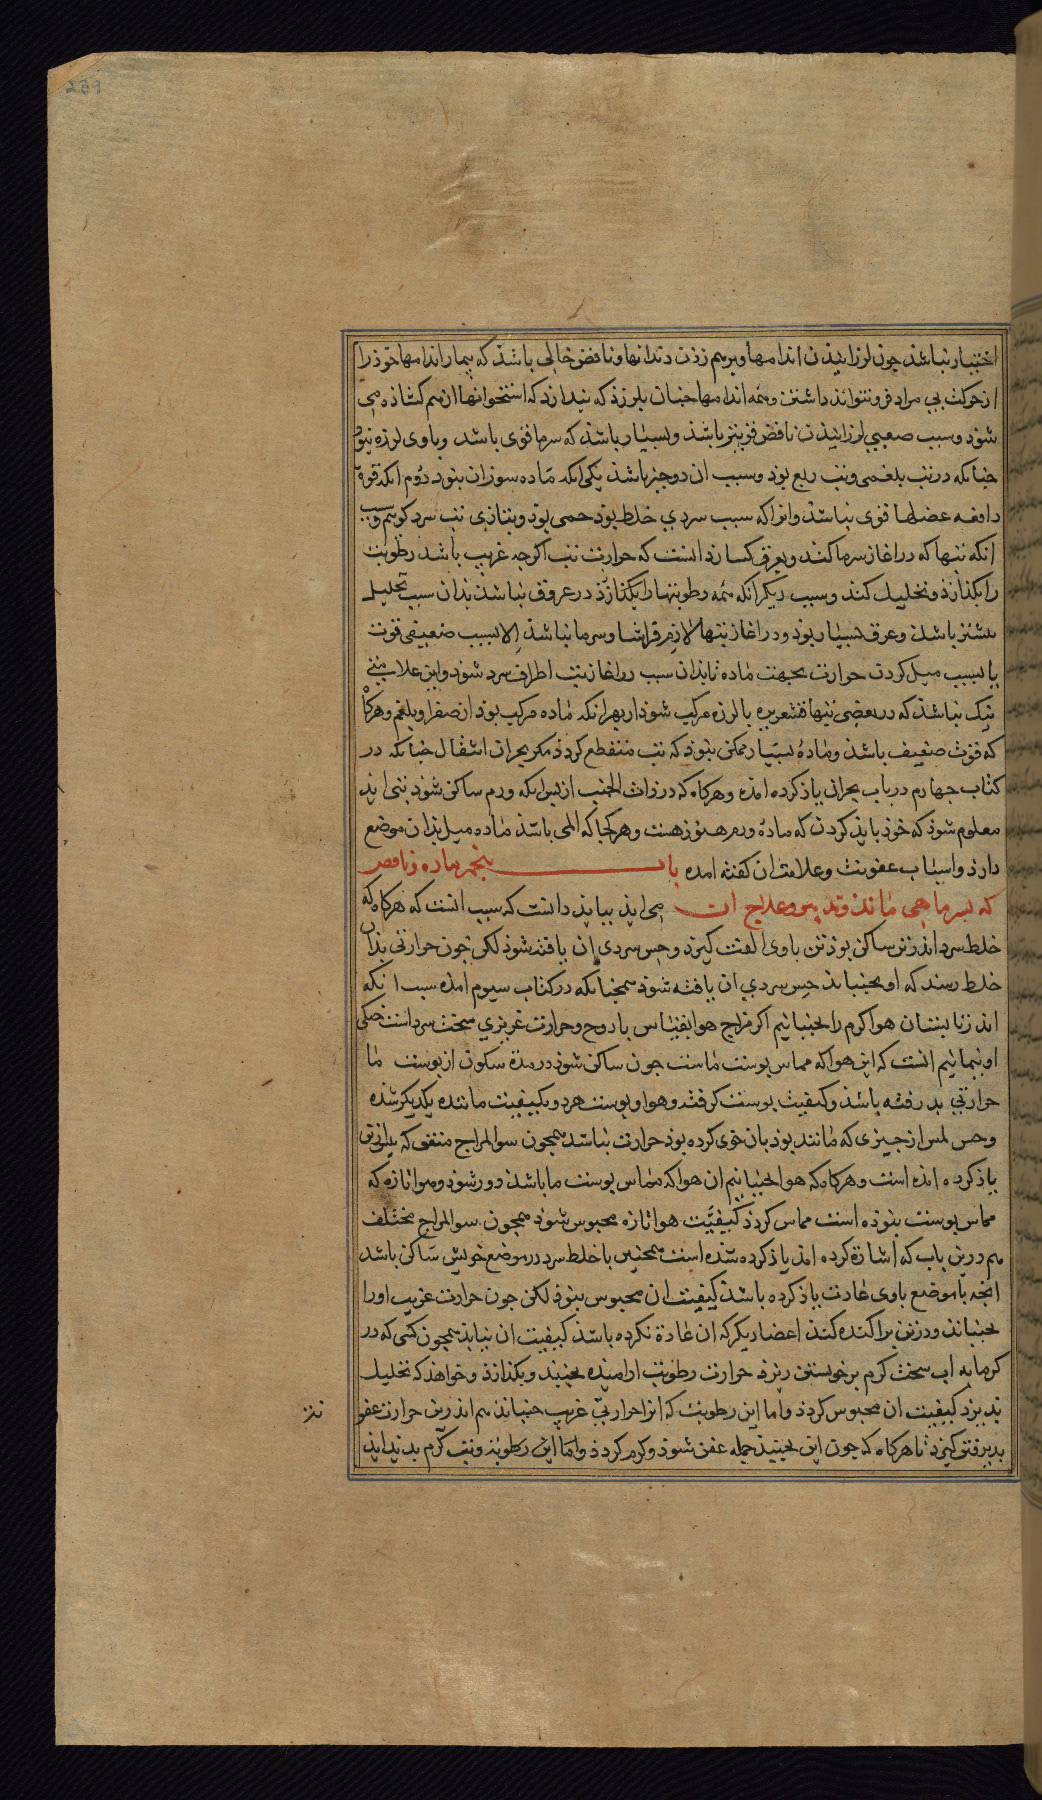 239
اختیار نباشد چون لرزانیدن اندامها و برهم زدن دندانها و نافض حالی باشد که بیمار اندامها خوذ را
از حرکت بی مراد فرو نتواند داشتن و همه اندامها جنان بلرزد که پندارد که استخوانها از هم کشاده می
شوذ و سبب صعبی لرزانیدن نافض قوی‌تر باشد و بسیار باشد که سرما قوی باشد و با وی لرزه نبوذ
جنانکه در تب بلغمی و تب ربع بوذ و سبب ان دو جیز باشد یکی انکه ماده سوزان بنوذ دوم انکه قوة
دافعه عضلها قوی نباشد و انرا که سبب سردی خلط بود حمی بود و بتازی تب سرد کویم و سبب
انکه تبها که در اغاز سرما کند و بعرق کسارد انست که حرارت تب اکرجه غریب باشد رطوبت
را بکدازد و تحلیل کند و سبب دیکر انکه همه رطوبتها را بکدازد در عروق نباشد بدان سبب تحلیل
بیشتر باشد و عرق بسیار بوذ و در اغاز تبها لازم قراشا و سرما نباشد الا بسبب ضعیفی قوت
یا بسبب میل کردن حرارت بجهت ماده تا بدان سبب در اغاز تب اطراف سرد شوذ و این علامتی
نیک نباشد که در بعضی تبها قشعریره با لرزه مرکب شوذ از بهر انکه ماده مرکب بوذ از صفرا و بلغم و هرکاه
که قوت ضعیف باشد و ماده بسیار ممکن بنوذ که تب منقطع کردد مکر بحران انتقال جنانکه در
کتاب جهارم در باب بحران یاذ کرده امده و هرکاه که در ذات الجنب از بس انکه ورم ساکن شوذ تبی اید
معلوم شوذ که خوذ باید کردن که ماده ورم هنوز هست و هر کجا که المی باشد ماده میل بدان موضع
دارد و اسباب عفونت و علامت ان کفته امده باب پنجم
که بسرما همی ماند و تدبیر و علاج ان می اید بباید دانست که سبب انست که هرکاه که
خلط سرد اندر تن ساکن بوذ تن با وی الفت کیرد و حس سردی ان یافته نشوذ لکن جون حرارتی بدان
خلط رسد که او بجنباند حس سردی ان یافته شوذ همجنانکه در کتاب سیوم امده سبب انکه
اندر تابستان هوا کرم را بجنبانیم اکر مزاج هوا بقیاس با روح و حرارت غریزی سخت سرد است خنکی
او بیابیم انست که این هوا که مماس بوست ماست جون ساکن شوذ در مدة سکون از بوست ما
حرارتی بدرفته باشد و کیفیت بوست کرفته و هوا و بوست هر دو بکیفیت ماننده یکدیکر شده
و حس لمس از جیزی که مانند بوذ بان خوی کرده بوذ حرارت نباشد همجون سوالمزاج متفق که
یاذ کرده امده است و هرکاه که هوا بجنبانیم ان هوا که مماس بوست ما باشد دور شوذ و هوا تازه که
مماس بوست بنوذه است مماس کردد کیفیت هوا تازه محبوس شوذ همجون سوالمزاج مختلف
هم درین باب که اشارة کرده امد یاذ کرده شده است همجنین با خلط سرد در موضع خویش ساکن باشد
انجه با موضع با وی عادت یاذ کرده باشد کیفیت ان محبوس بنوذ لکن جون حرارت غریب او را
بجنباند و در تن براکنده کند اعضا دیکر که ان عادة نکرده باشد کیفیت ان بیابد همجون کسی که در
کرمابه اب سخت کرم بر خویشتن ریزد حرارت رطوبت ارامیده بجنبند و بکدازد و خواهد که تحلیل
بدیرد کیفیت ان محبوس کردد و اما این رطوبت که انرا حرارتی غریب جنباند هم اندرین حرارت عفو
بدیرفتن کیرد تا هرکاه که جون این بجنبد جمله عفن شوذ و کرم کردد و اما این رطوبت و تب کرم بدید اید